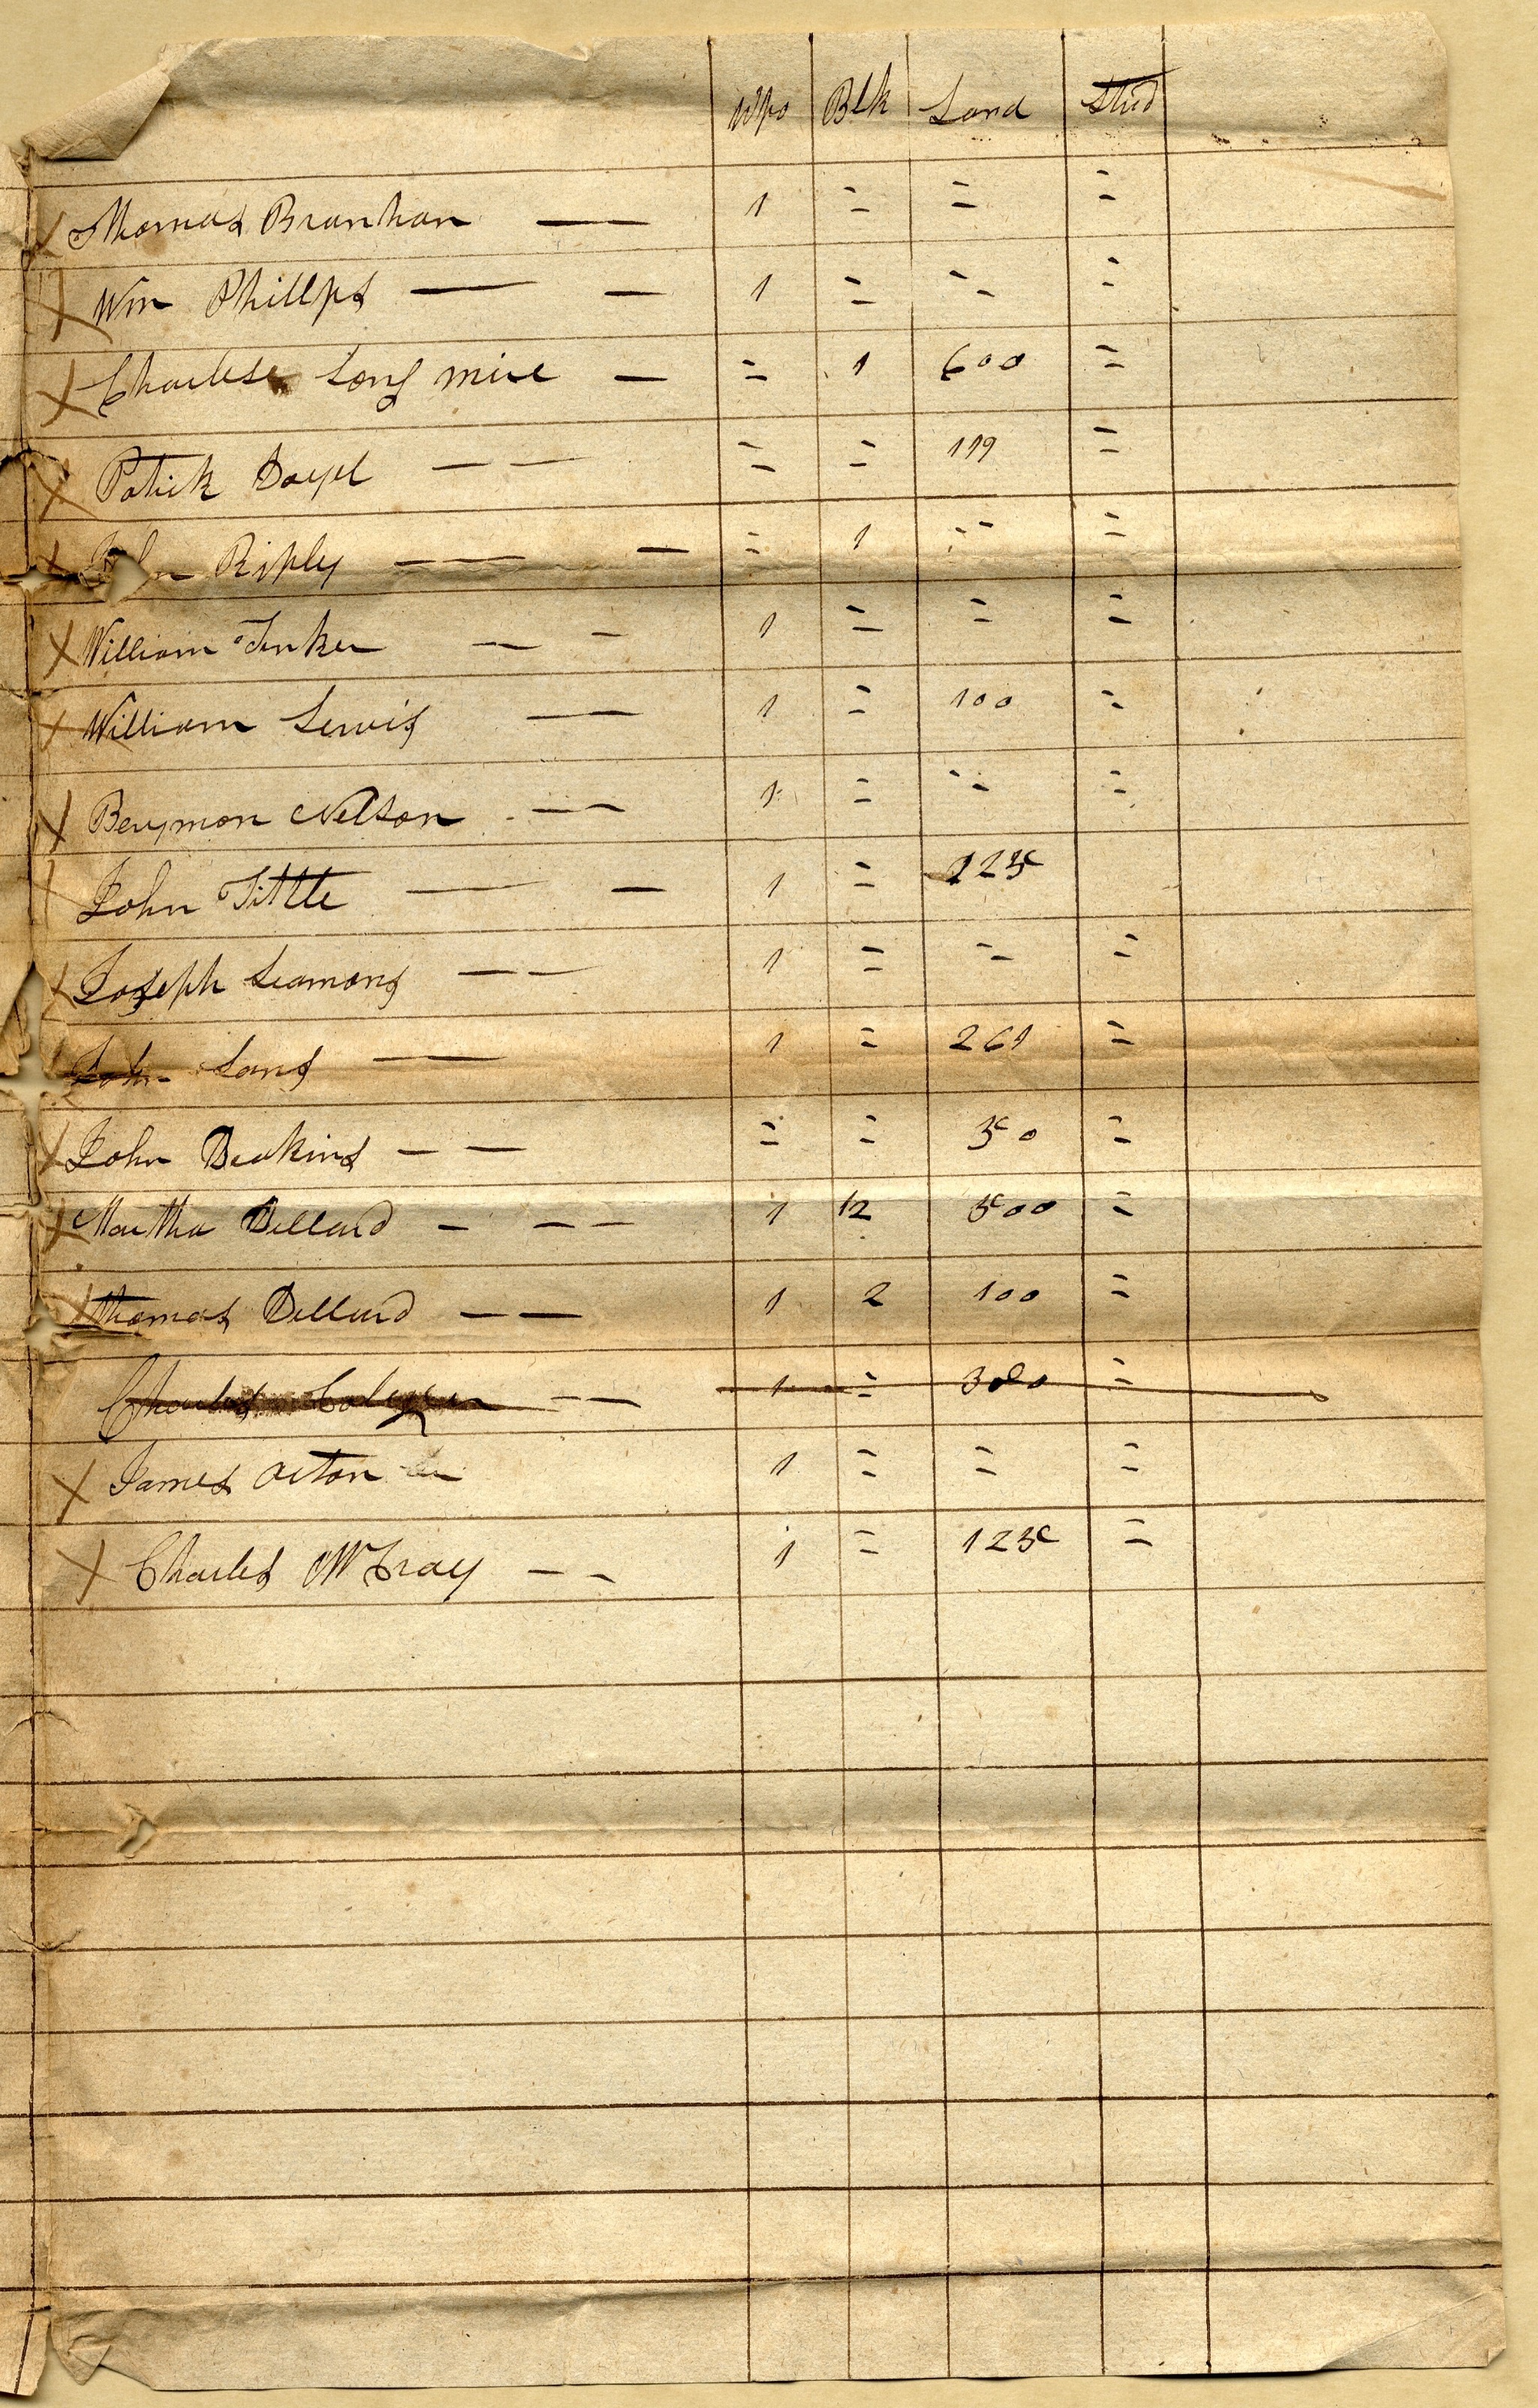 Wpo Blk Land Stud
X Thomas Branhan — 1 = = =
X Wm Phillps — — 1 = = =
X Charles Long mire — = 1 600 =
X Patick Doyel — — = = 119 =
X Ripley — — = 1 = =
X William Tinker — — 1 = = =
X William Lewis — 1 = 100 =
X Benymon Nelson — — 1 = = =
X John Tittle — — 1 = 125
X Joseph Leamons — — 1 = = =
John Long — 1 = 261 =
X John Deakins — — = = 50 =
X Martha Dillard — — — 1 12 500 =
X Thomas Dillard — — 1 2 100 =
Charles — — 1 = 300 =
X James Acton 1 = = =
X Charles McCray — — 1 = 125 =